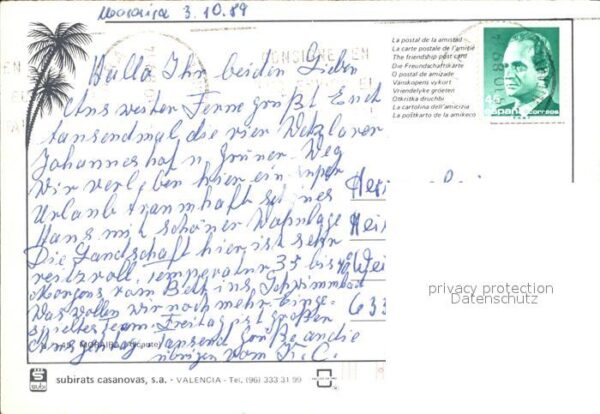 Moraira 3.10.89
Hallo Ihr beiden Lieben
Aus weiter Ferne grüßt Euch
tausendmal die vier Wetzlarer
Johannes hof u. Grüner Weg
Wir verleben hier ein super
Urlaub traumhaft schönes
Haus mit schöner Wohnlage
Die Landschaft hier ist sehr
reitzvoll, temperatur 35 bis 40
Morgens vom Bett ins Schwimmbad
Was wollen wir noch mehr. Einge-
spieltes Team. Freitag ist großer
tausend Grüße an die
übrigen vom K.C.
La postal de la amistad
La carte postale de l'amitié
The friendship post card
Die Freundschaftkarte
O postal de amizade
Vänskapens vykort
Vriendelyke groeten
Otkritka druchbi
La cartolina dell'amicizia
La poŝtkarto da la amikeco
España correos
MORAIRA
633
privacy protection
Datenschutz
S
subi
subirats casanovas, s.a. - VALENCIA - Tel. (96) 333 31 99